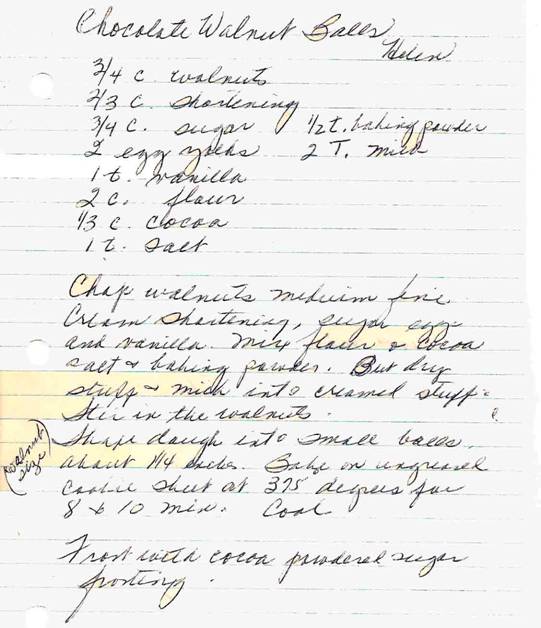 Chocolate Walnut Balls
Helen
3/4 c. walnuts
2/3 c. shortening
3/4 c. sugar 1/2 t. baking powder
2 egg yolks 2 T. milk
1 t. vanilla
2 c. flour
1/3 c. cocoa
1 t. salt
Chop walnuts medium fine.
Cream shortening, sugar egg
and vanilla. Mix flour & cocoa
salt & baking powder. But dry
stuff & milk into creamed stuff.
Stir in the walnuts.
Shape dough into small balls,
(walnut size)
about 1 1/4 inches. Bake on ungreased
cookie sheet at 375 degrees for
8 to 10 min. Cool
Frost with cocoa powdered sugar
frosting.